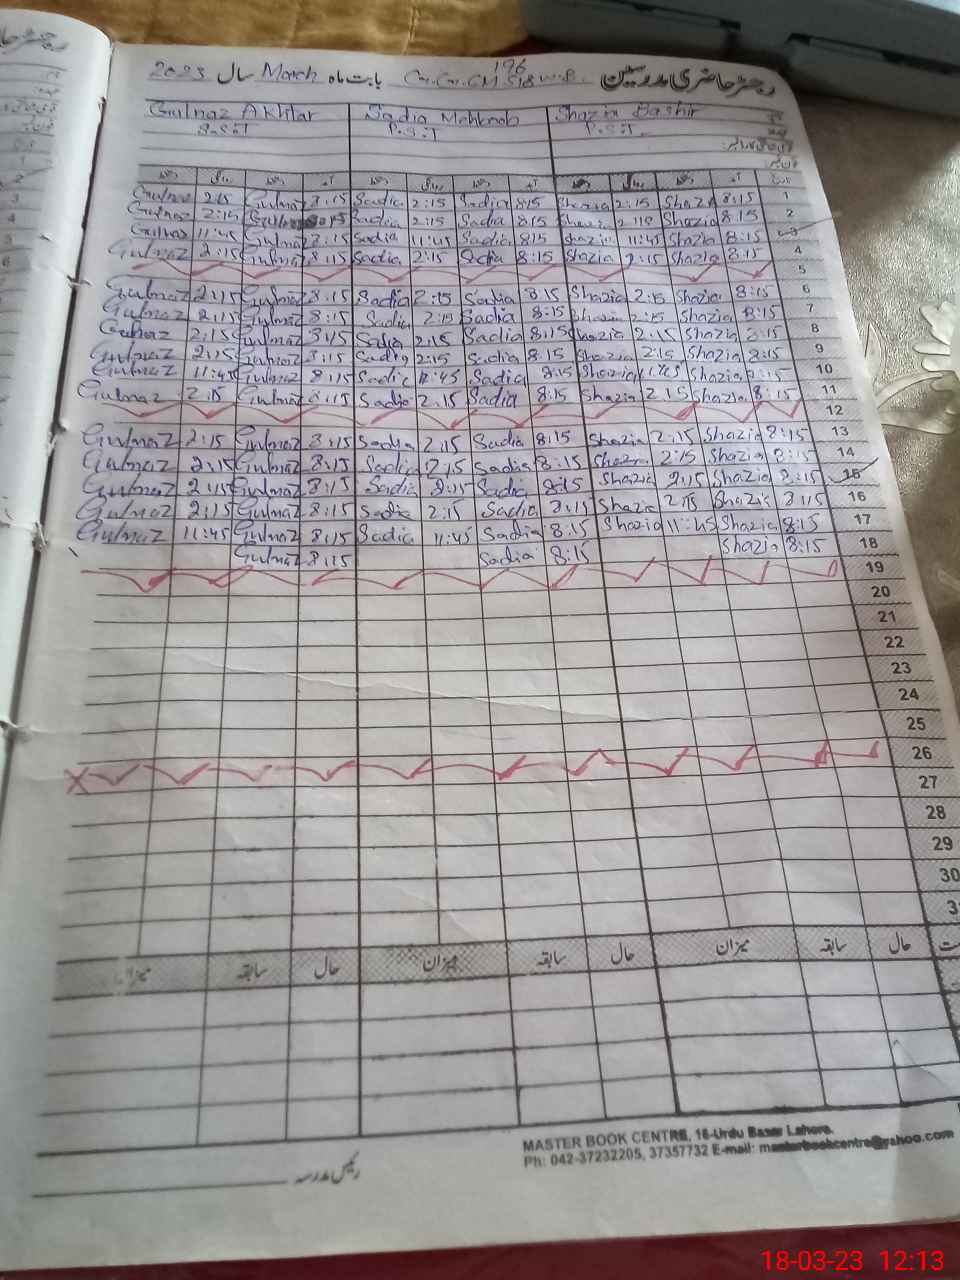 رجسٹر حاضری مدرسین 196 بابت ماہ March سال 2023
Gulnaz Akhtar Sadia Mehboob Shazia Bashir
P.S.T P.S.T
Gulnaz 2:15 Gulnaz 8:15 Sadia 2:15 Sadia 8:15 Shazia 2:15 Shazia 8:15 1
Gulnaz 2:15 Sadia 2:15 Sadia 8:15 Shazia 2:15 Shazia 8:15 2
Gulnaz 11:45 Gulnaz 8:15 Sadia 11:45 Sadia 8:15 Shazia 11:45 Shazia 8:15 3
Gulnaz 2:15 Gulnaz 8:15 Sadia 2:15 Sadia 8:15 Shazia 2:15 Shazia 8:15 4
5
Gulnaz 2:15 Gulnaz 8:15 Sadia 2:15 Sadia 8:15 Shazia 2:15 Shazia 8:15 6
Gulnaz 2:15 Gulnaz 8:15 Sadia 2:15 Sadia 8:15 Shazia 2:15 Shazia 8:15 7
Gulnaz 2:15 Gulnaz 8:15 Sadia 2:15 Sadia 8:15 Shazia 2:15 Shazia 8:15 8
Gulnaz 2:15 Gulnaz 8:15 Sadia 2:15 Sadia 8:15 Shazia 2:15 Shazia 8:15 9
Gulnaz 11:45 Gulnaz 8:15 Sadia 11:45 Sadia 8:15 Shazia Shazia 8:15 10
Gulnaz 2:15 Gulnaz 8:15 Sadia 2:15 Sadia 8:15 Shazia 2:15 Shazia 8:15 11
12
Gulnaz 2:15 Gulnaz 8:15 Sadia 2:15 Sadia 8:15 Shazia 2:15 Shazia 8:15 13
Gulnaz 2:15 Gulnaz 8:15 Sadia 2:15 Sadia 8:15 Shazia 2:15 Shazia 8:15 14
Gulnaz 2:15 Gulnaz 8:15 Sadia 2:15 Sadia 8:15 Shazia 2:15 Shazia 8:15 15
Gulnaz 2:15 Gulnaz 8:15 Sadia 2:15 Sadia 8:15 Shazia 2:15 Shazia 8:15 16
Gulnaz 11:45 Gulnaz 8:15 Sadia 11:45 Sadia 8:15 Shazia 11:45 Shazia 8:15 17
Gulnaz 8:15 Sadia 8:15 Shazia 8:15 18
19
20
21
22
23
24
25
26
27
28
29
30
حال سابقہ میزان حال سابقہ میزان حال سابقہ میزان
MASTER BOOK CENTRE, 16-Urdu Bazar Lahore.
Ph: 042-37232205, 37357732 E-mail: masterbookcentre@yahoo.com
رئیس مدرسہ
18-03-23 12:13